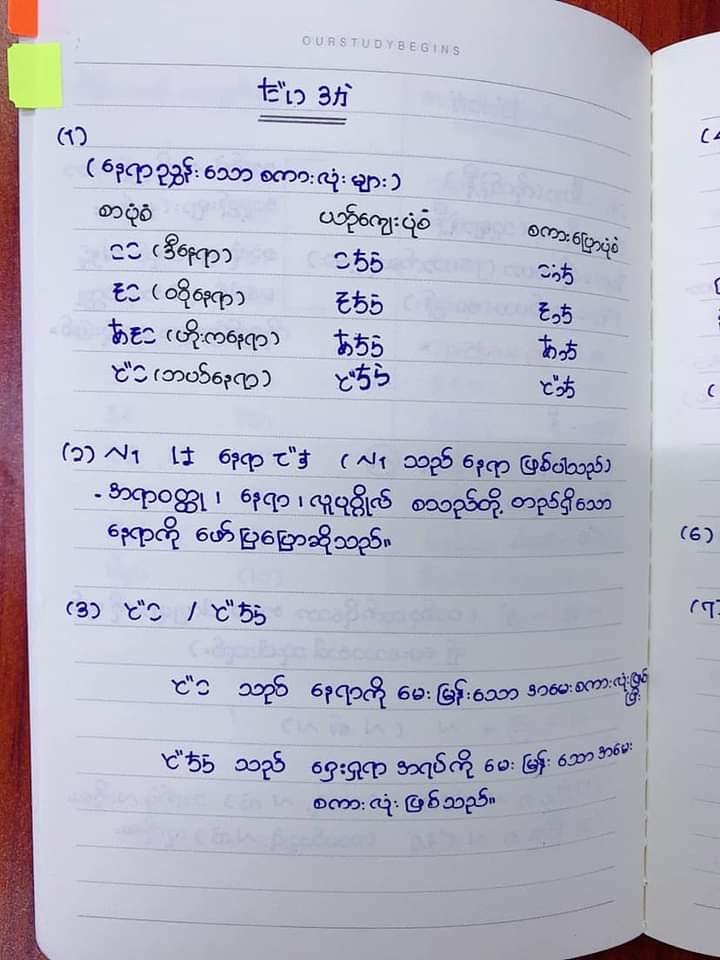 OURSTUDYBEGINS
だい 3か
(၅)
(နေရာညွှန်းသော စကားလုံးများ)
စာပုံစံ ယဉ်ကျေးပုံစံ စကားပြောပုံစံ
ここ (ဒီနေရာ) こちら こっち
そこ (ဝဝိုနေရာ) そちら そっち
あそこ (ဟိုးကနေရာ) あちら あっち
どこ (ဘယ်နေရာ) どちら どっち
(၁) N1 は နေရာ です (N1 သည် နေရာ ဖြစ်ပါသည်)
- အရာဝတ္ထု ၊ နေရာ ၊ လူပုဂ္ဂိုလ် စသည်တို့ တည်ရှိသော
နေရာကို ဖော်ပြပြောဆိုသည်။
(3) どこ / どちら
どこ သည် နေရာကို မေးမြန်းသော အမေးစကားလုံးဖြစ်
ပြီး
どちら သည် ရှေးရှုရာ အရပ်ကို မေးမြန်းသော အမေး
စကားလုံး ဖြစ်သည်။
(6)